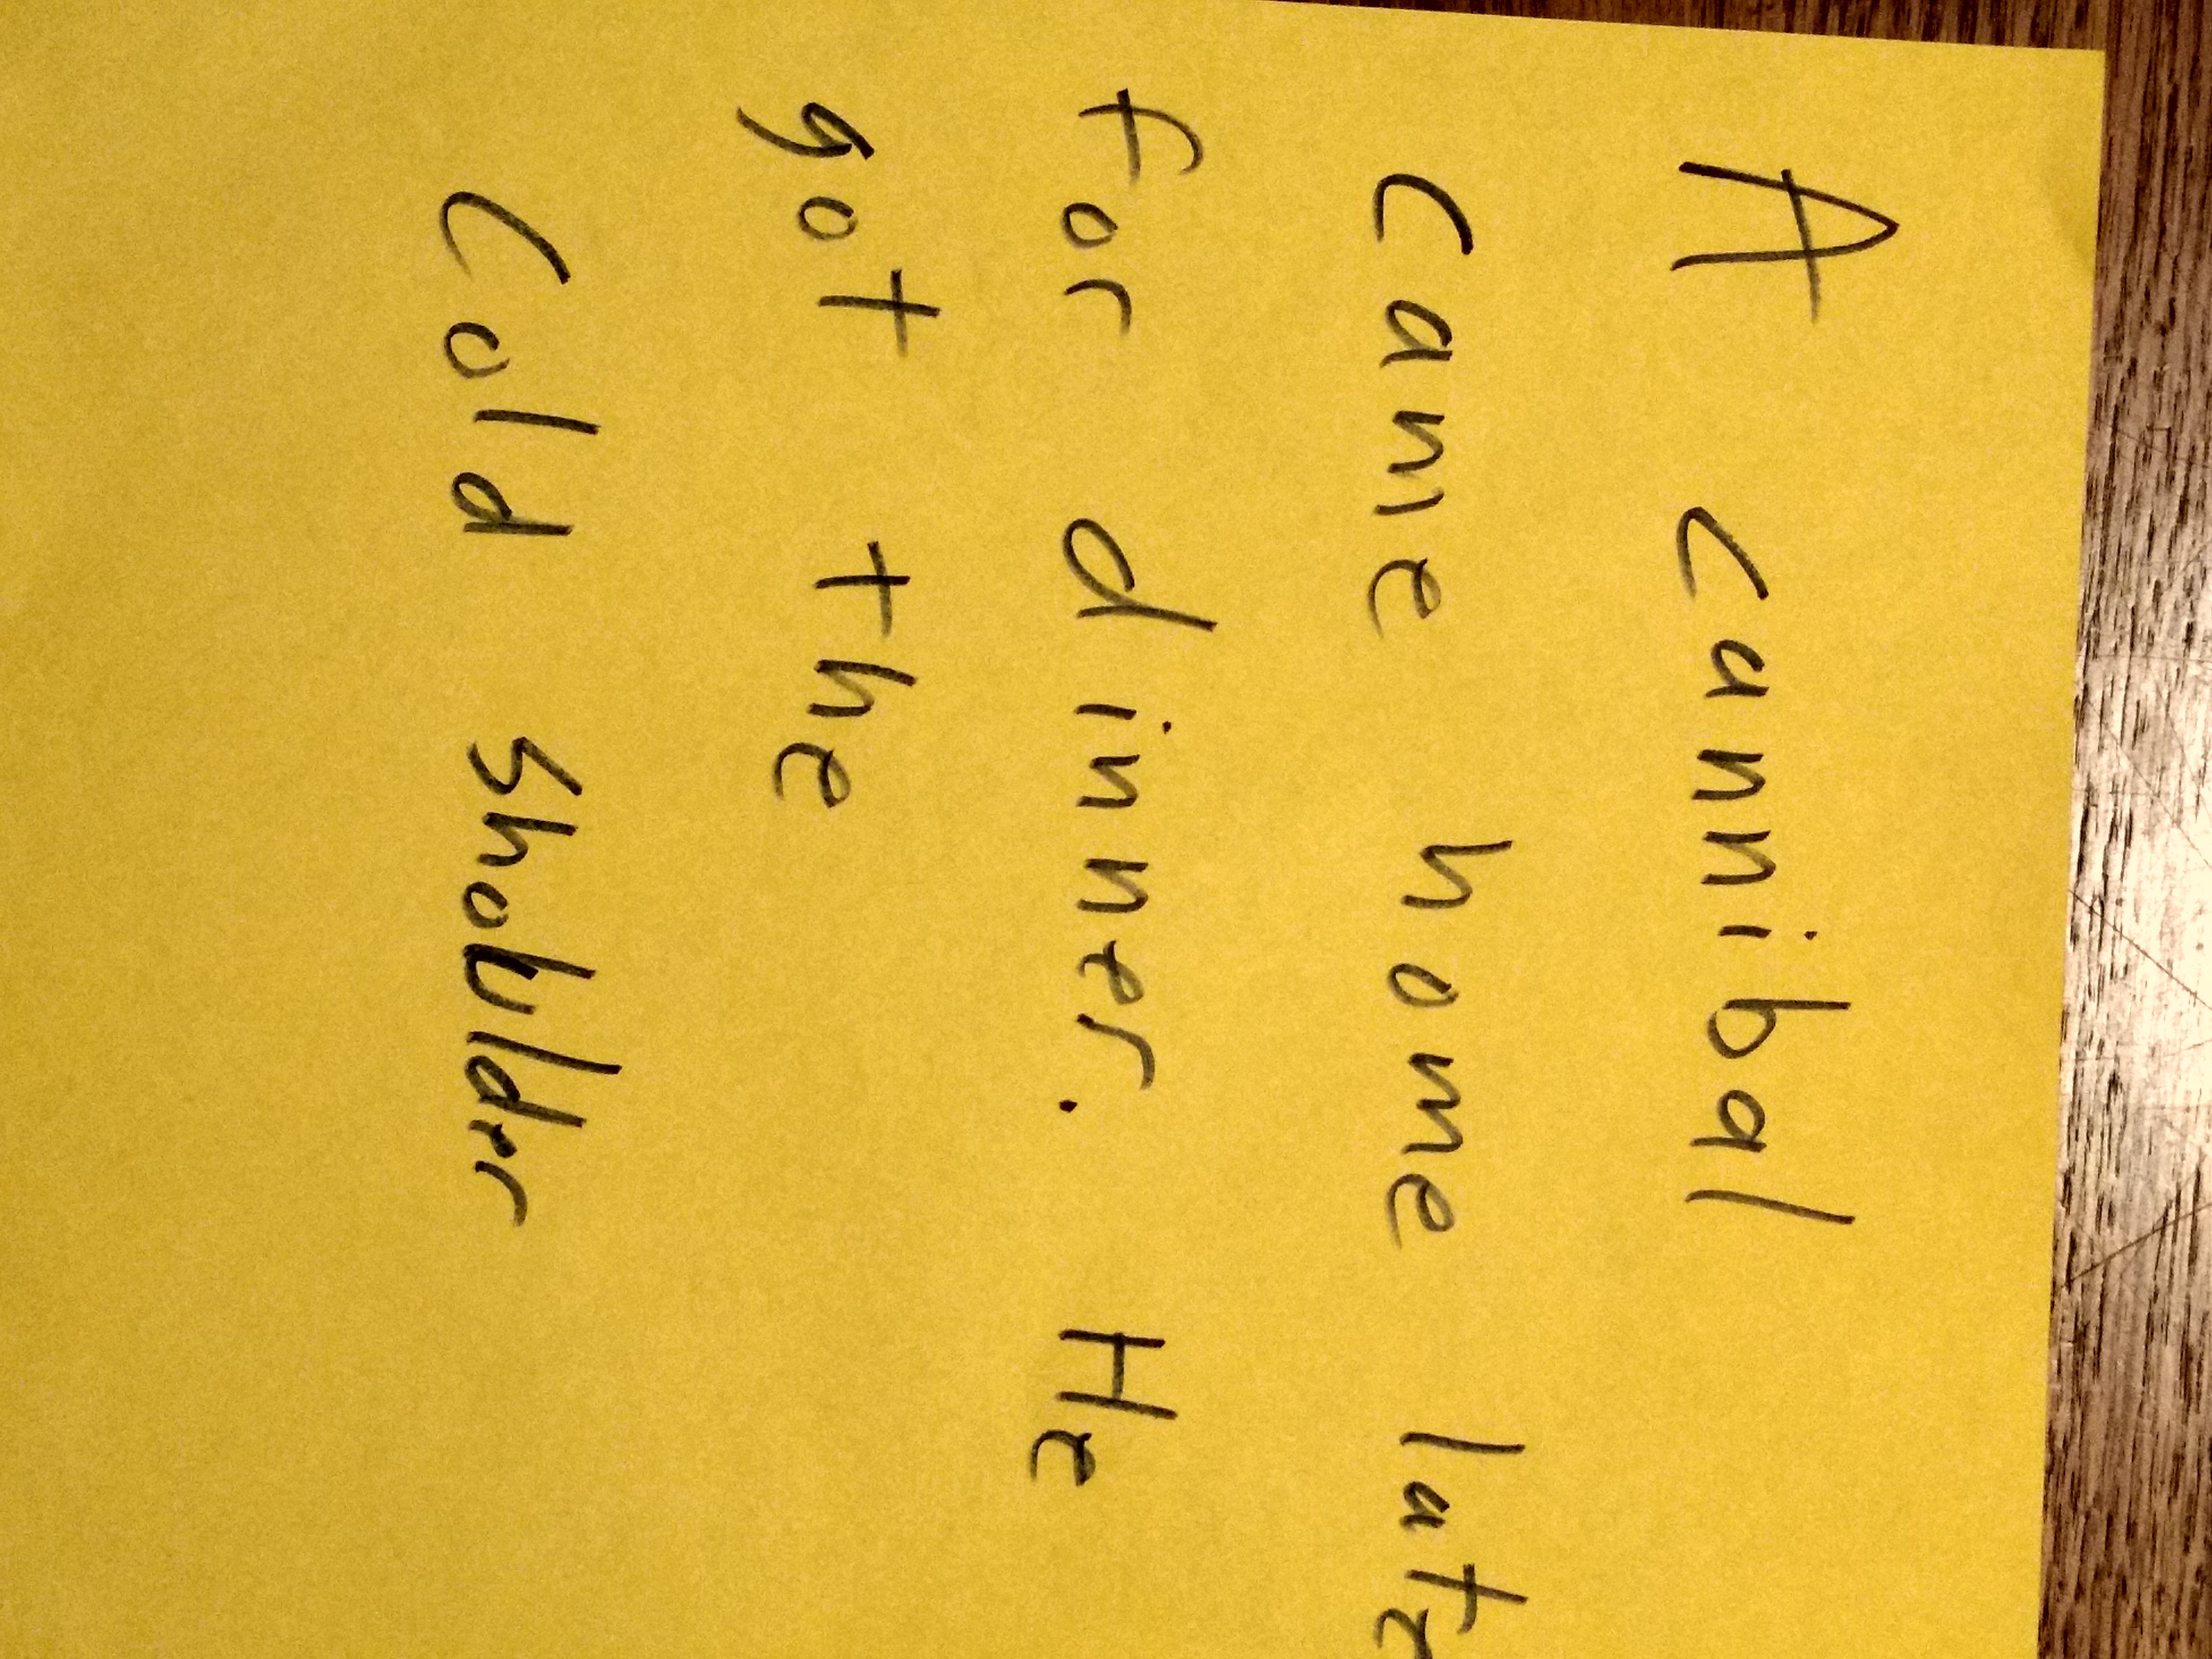 A cannibal
came home late
for dinner. He
got the
Cold Shoulder